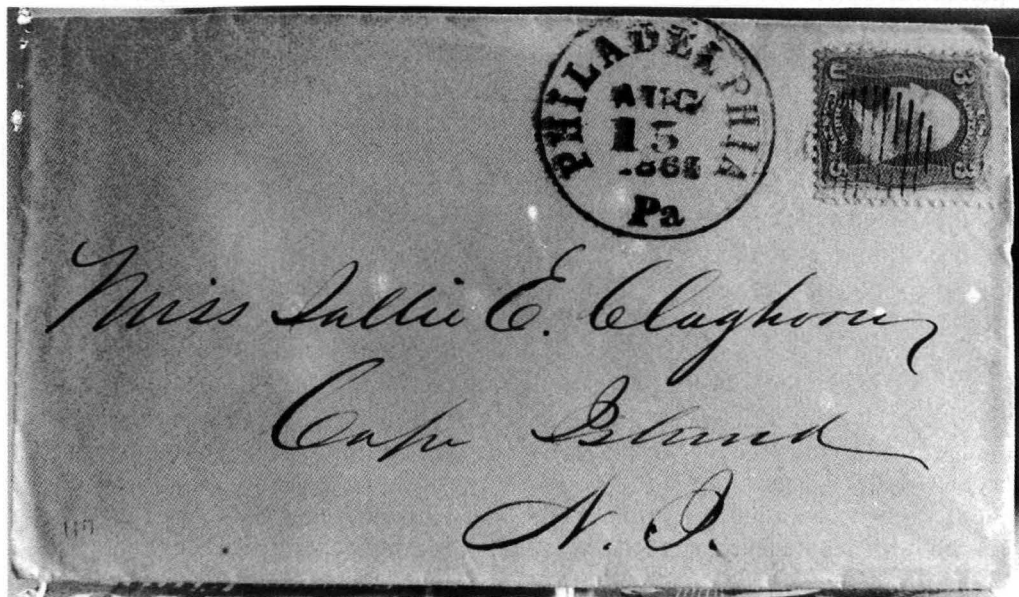 PHILADELPHIA
AUG
15
Pa
U 3
S 3
Miss Sallie E. Claghorn
Cape Island
N. J.